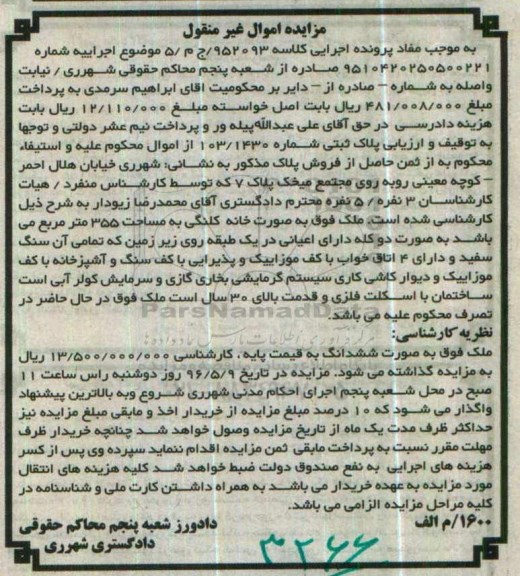 مزایده اموال غیر منقول
به موجب مفاد پرونده اجرایی کلاسه ۹۵۲۰۹۳/ج م /۵ موضوع اجراییه شماره
۹۵۱۰۴۲۰۲۵۰۵۰۰۲۲۱ صادره از شعبه پنجم محاکم حقوقی شهرری / نیابت
واصله به شماره – صادره از – دایر بر محکومیت اقای ابراهیم سرمدی به پرداخت
مبلغ ۴۸۱/۰۰۸/۰۰۰ ریال بابت اصل خواسته مبلغ ۱۲/۱۱۰/۰۰۰ ریال بابت
هزینه دادرسی در حق آقای علی عبدالله پیله ور و پرداخت نیم عشر دولتی و توجها
به توقیف و ارزیابی پلاک ثبتی شماره ۱۰۳/۱۴۳۰ از اموال محکوم علیه و استیفاء
محکوم به از ثمن حاصل از فروش پلاک مذکور به نشانی: شهرری خیابان هلال احمر
– کوچه معینی روبه روی مجتمع میخک پلاک ۷ که توسط کارشناس منفرد / هیات
کارشناسان ۳ نفره / ۵ نفره محترم دادگستری آقای محمدرضا زیودار به شرح ذیل
کارشناسی شده است. ملک فوق به صورت خانه کلنگی به مساحت ۳۵۵ متر مربع می
باشد به صورت دو کله دارای اعیانی در یک طبقه روی زیر زمین که تمامی آن سنگ
سفید و دارای ۴ اتاق خواب با کف موزاییک و پذیرایی با کف سنگ و آشپزخانه با کف
موزاییک و دیوار کاشی کاری سیستم گرمایشی بخاری گازی و سرمایش کولر آبی است
ساختمان با اسکلت فلزی و قدمت بالای ۳۰ سال است ملک فوق در حال حاضر در
تصرف محکوم علیه می باشد.
ParsNamadData
نظریه کارشناسی:
ملک فوق به صورت ششدانگ به قیمت پایه، کارشناسی ۱۳/۵۰۰/۰۰۰/۰۰۰ ریال
به مزایده گذاشته می شود. مزایده در تاریخ ۹۶/۵/۹ روز دوشنبه راس ساعت ۱۱
صبح در محل شعبه پنجم اجرای احکام مدنی شهرری شروع وبه بالاترین پیشنهاد
واگذار می شود که ۱۰ درصد مبلغ مزایده از خریدار اخذ و مابقی مبلغ مزایده نیز
حداکثر ظرف مدت یک ماه از تاریخ مزایده وصول خواهد شد چنانچه خریدار ظرف
مهلت مقرر نسبت به پرداخت مابقی ثمن مزایده اقدام ننماید سپرده وی پس از کسر
هزینه های اجرایی به نفع صندوق دولت ضبط خواهد شد کلیه هزینه های انتقال
مورد مزایده به عهده خریدار می باشد به همراه داشتن کارت ملی و شناسنامه در
کلیه مراحل مزایده الزامی می باشد.
۱۶۰۰/م الف
دادورز شعبه پنجم محاکم حقوقی
دادگستری شهرری
۳۲۶۶